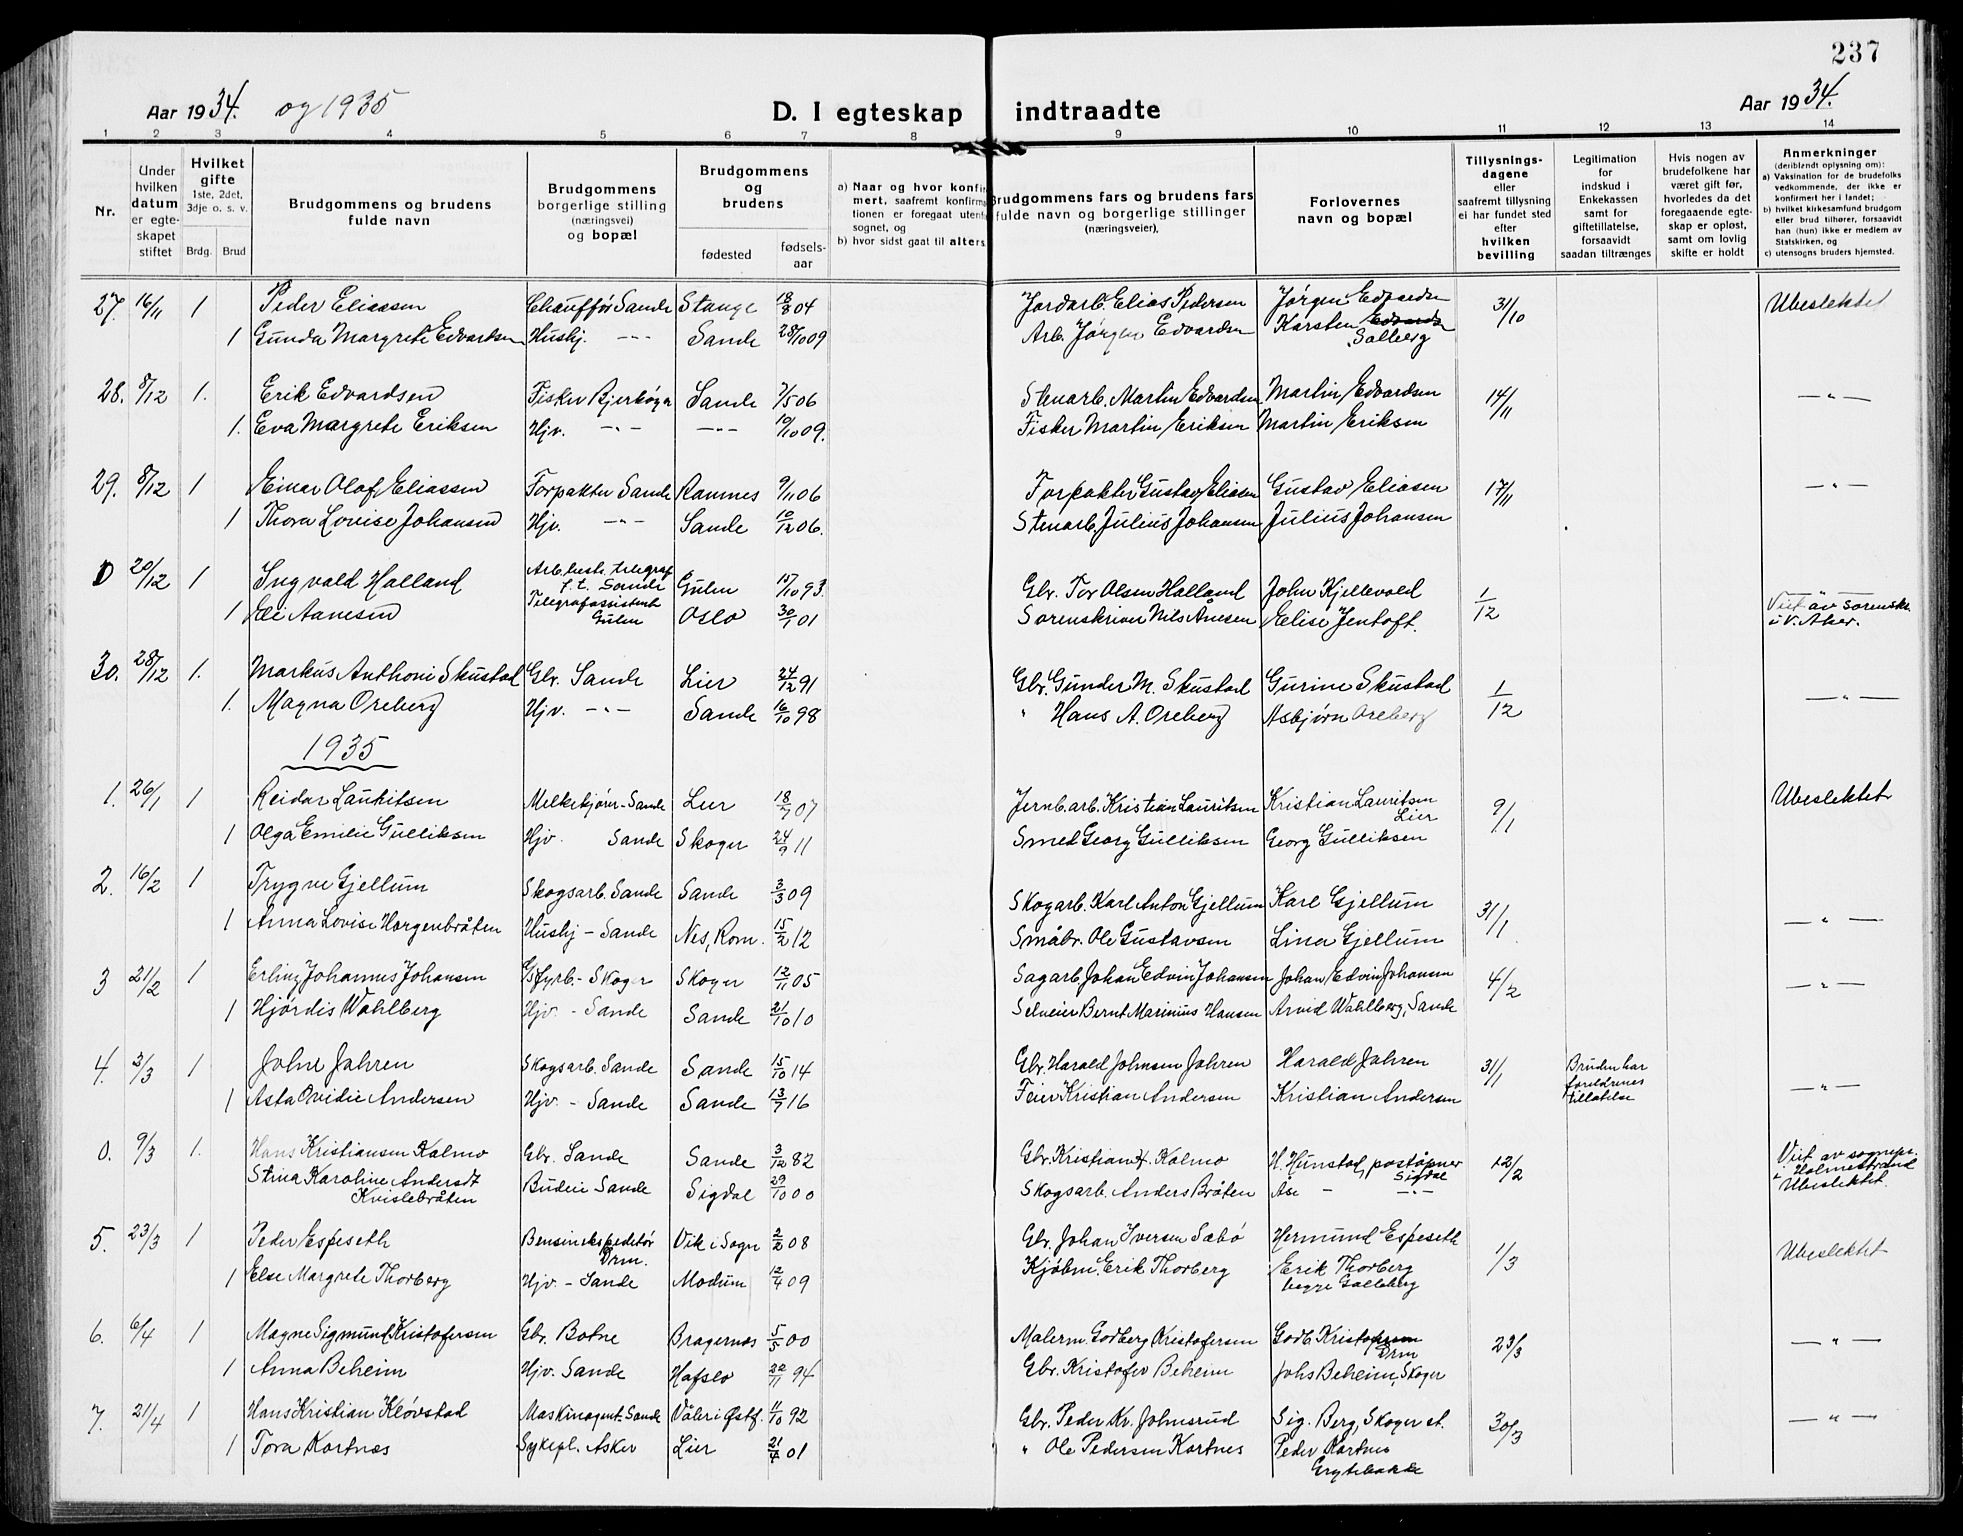 237
Aar 1934. og 1935
D. I egteskap indtraadte
Aar 1934.
1 2 3 4 5 6 7 8 9 10 11 12 13 14
Nr.
Under hvilken datum er egteskapet stiftet
Hvilket gifte 1ste, 2det, 3dje o. s. v.
Brdg. Brud
Brudgommens og brudens fulde navn
Brudgommens borgerlige stilling (næringsvei) og bopæl
Brudgommens og brudens
fødested fødselsaar
a) Naar og hvor konfirmert, saafremt konfirmationen er foregaat utenfor sognet, og
b) hvor sidst gaat til alters
Brudgommens fars og brudens fars fulde navn og borgerlige stillinger (næringsveier),
Forlovernes navn og bopæl
Tillysningsdagene eller saafremt tillysning ei har fundet sted efter hvilken bevilling
Legitimation for indskud i Enkekassen samt for giftetillatelse, forsaavidt saadan tiltrænges
Hvis nogen av brudefolkene har været gift før, hvorledes da det foregaaende egteskap er opløst, samt om lovlig skifte er holdt
Anmerkninger (deriblendt oplysning om):
a) Vaksination for de brudefolks vedkommende, der ikke er konfirmert her i landet;
b) hvilket kirkesamfund brudgom eller brud tilhører, forsaavidt han (hun) ikke er medlem av Statskirken, og
c) utensogns bruders hjemsted.
27. 16/11 1 Peder Eliassen Chauffør Sande Stange 18/8 04 Jordarb. Elias Pedersen Jørgen Edvardsen 31/10 Ubeslektet
1 Gunda Margrete Edvardsen Hushj. -"- Sande 28/10 09 Arb. Jørgen Edvardsen Karsten Edvardsen Solberg
28. 8/12 1. Erik Edvardsen Fisker Bjerkøya Sande 7/5 06 Stenarb. Martin Edvardsen Martin Edvardsen 14/11 -"-
1. Eva Margrete Eriksen Hjv. -"- -"- 10/10 09. Fisker Martin Eriksen Martin Eriksen
29. 8/12 1 Einar Olaf Eliassen Forpakter Sande Ramnes 9/11 06 Forpakter Gustav Eliasen Gustav Eliasen 17/11 -"-
1 Thora Lovise Johansen Hjv. -"- Sande 10/12 06. Stenarb. Julius Johansen Julius Johansen
0 20/12 1 Ingvald Halland Arb.best. telegraf f.t. Sande Gulen 17/10 93. Gbr. Tor Olsen Halland John Kjellevold 1/12 Viet av sorenskr. i V. Aker.
1 Eli Aanesen Telegrafassistent Gulen Oslo 30/1 01 Sorenskriver Nils Ånesen Elise Jentoft.
30. 28/12 1. Markus Anthoni Skustad Gbr. Sande Lier 24/12 91 Gbr. Gunder M. Skustad Gurine Skustad 1/12 -"-
1. Magna Oreberg Hjv. -"- Sande 16/10 98 " Hans A. Oreberg Asbjørn Oreberg
1935
1. 26/1 1 Reidar Lauritsen Melkekjører-Sande Lier 18/7 07 Jernb.arb. Kristian Lauritsen Kristian Lauritsen Lier 9/1 Ubeslektet
1 Olga Emilie Gulliksen Hjv. Sande Skoger 24/9 11 Smed Georg Gulliksen Georg Gulliksen
2. 16/2 1 Trygve Gjellum Skogsarb. Sande Sande 3/3 09 Skogarb. Karl Anton Gjellum Karl Gjellum 31/1 -"-
1 Anna Lovise Horgenbråten Hushj - Sande Nes, Rom. 15/2 12 Småbr. Ole Gustavsen Lina Gjellum
3 21/2 1 Erling Johannes Johansen Fyrb.- Skoger Skoger 12/11 05 Sagarb. Johan Edvin Johansen Johan Edvin Johansen 4/2 -"-
1 Hjørdis Wahlberg Hjv. - Sande Sande 21/10 10 Selveier Bernt Marinius Hansen Arvid Wahlberg, Sande
4. 3/3 1 John Jahren Skogsarb. Sande Sande 15/10 14 Gbr. Harald Johnsen Jahren Harald Jahren 31/1 Bruden har foreldrenes tillatelse -"-
1 Asta Ovidie Andersen Hjv. - Sande Sande 13/7 16 Feier Kristian Andersen Kristian Andersen
0. 9/3 1. Hans Kristiansen Kolmo Gbr. Sande Sande 3/12 82 Gbr. Kristian H. Kolmo H. Hunstad, poståpner Sigdal 12/2 Viet av sognepr. i Holmestrand Ubeslektet.
Stina Karoline Andersdt Kvislebråten Budeie Sande Sigdal 29/10 00 Skogsarb. Anders Bråten Åse - -"-
5. 23/3 1 Peder Espeseth Bensinekspeditør Drm. Vik i Sogn 2/2 08 Gbr. Johan Iversen Sæbø Hermund Espeseth 1/3 Ubeslektet
1 Else Margrete Thorberg Hjv. - Sande Modum 12/4 09 Kjøbm. Erik Thorberg Erik Thorberg begge Galleberg
6. 6/4 1 Magne Sigmund Kristofersen Gbr. Botne Bragernæs 5/5 00 Malerm. Godberg Kristofersen Godb. Kristofersen Drm 23/3 -"-
1 Anna Beheim Hjv. Sande Hafslo 22/11 94 Gbr. Kristofer Beheim Johs Beheim, Skoger
7. 21/4 1 Hans Kristian Kløvstad Maskinagent-Sande Våler i Østf. 11/10 92 Gbr. Peder Kr. Johnsrud Sig. Berg, Skoger st. 30/3 -"-
1 Tora Kortnes Sykepl. Asker Lier 21/4 01 " Ole Pedersen Kortnes Peder Kortnes Grytebakke